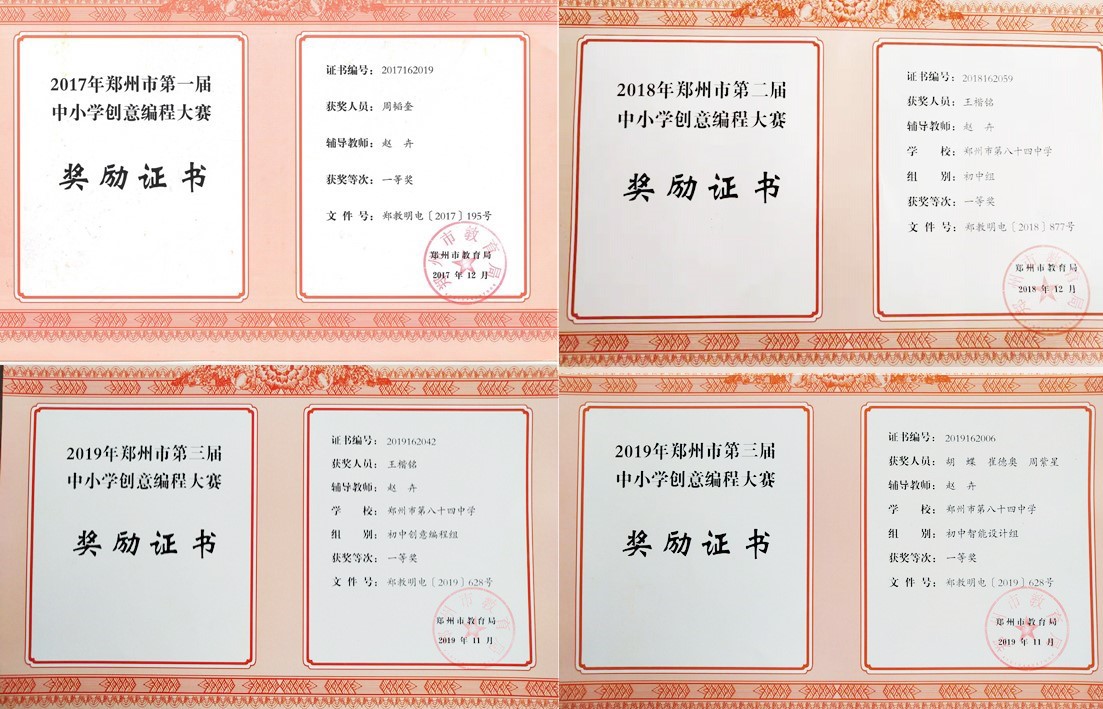 2017年郑州市第一届
中小学创意编程大赛
奖励证书
证书编号： 2017162019
获奖人员： 周韬奎
辅导教师： 赵 卉
获奖等次： 一等奖
文 件 号： 郑教明电〔2017〕195号
郑州市教育局
2017 年 12 月
2018年郑州市第二届
中小学创意编程大赛
奖励证书
证书编号： 2018162059
获奖人员： 王楷铭
辅导教师： 赵 卉
学 校： 郑州市第八十四中学
组 别： 初中组
获奖等次： 一等奖
文 件 号： 郑教明电〔2018〕877号
郑州市教育局
2018 年 12 月
2019年郑州市第三届
中小学创意编程大赛
奖励证书
证书编号： 2019162042
获奖人员： 王楷铭
辅导教师： 赵 卉
学 校： 郑州市第八十四中学
组 别： 初中创意编程组
获奖等次： 一等奖
文 件 号： 郑教明电〔2019〕628号
郑州市教育局
2019 年 11 月
2019年郑州市第三届
中小学创意编程大赛
奖励证书
证书编号： 2019162006
获奖人员： 胡 蝶 崔德奥 周紫星
辅导教师： 赵 卉
学 校： 郑州市第八十四中学
组 别： 初中智能设计组
获奖等次： 一等奖
文 件 号： 郑教明电〔2019〕628号
郑州市教育局
2019 年 11 月